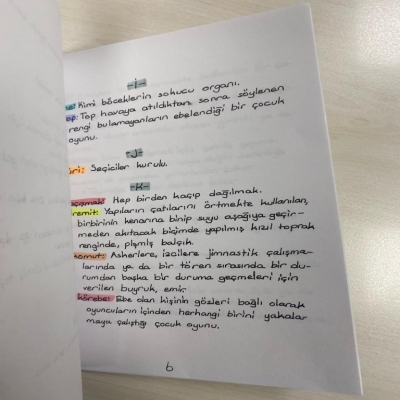 -İ-
Kimi böceklerin sokucu organı.
Top havaya atıldıktan sonra söylenen
rengi bulamayanların ebelendiği bir çocuk
oyunu.
-J-
Seçiciler kurulu.
-K-
Hep birden kaçıp dağılmak.
remit: Yapıların çatılarını örtmekte kullanılan,
birbirinin kenarına binip suyu aşağıya geçir-
meden akıtacak biçimde yapılmış kızıl toprak
renginde, pişmiş balçık.
komut: Askerlere, izcilere jimnastik çalışma-
larında ya da bir tören sırasında bir du-
rumdan başka bir duruma geçmeleri için
verilen buyruk, emir.
körebe: Ebe olan kişinin gözleri bağlı olarak
oyuncuların içinden herhangi birini yakala-
maya çalıştığı çocuk oyunu.
6